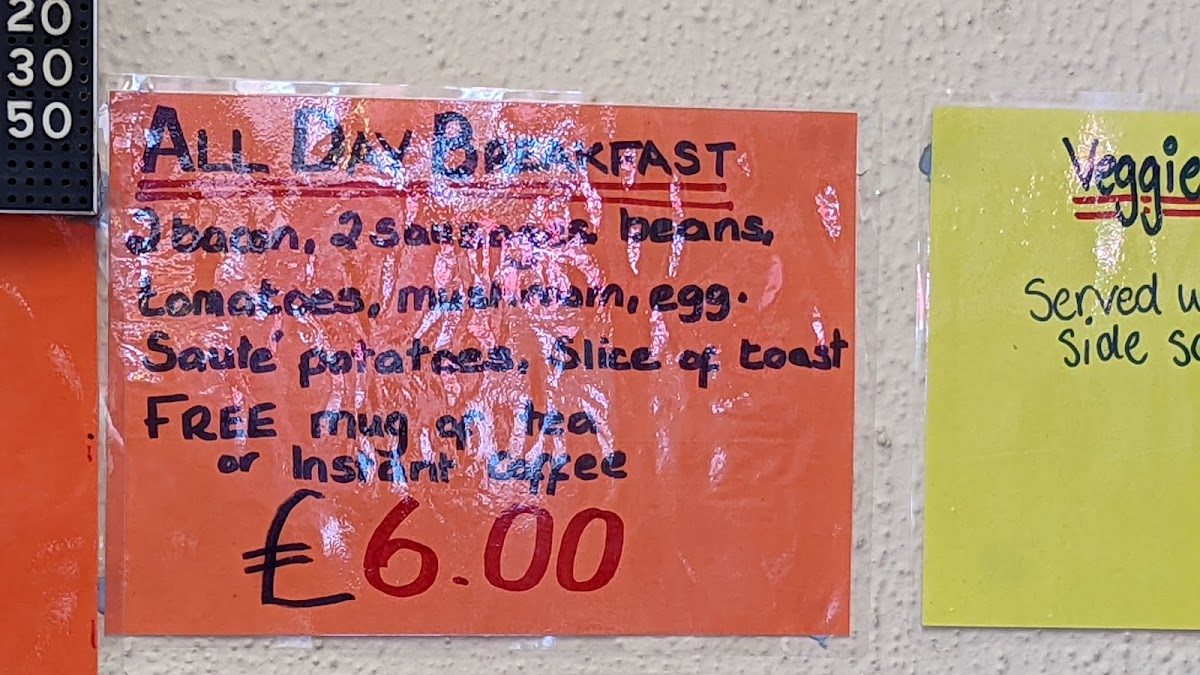 20
30
50
ALL DAY BREAKFAST
2 bacon, 2 sausages, beans,
tomatoes, mushroom, egg.
Sauté potatoes, Slice of toast
FREE mug of tea
or Instant coffee
£6.00
Veggie
Served
side